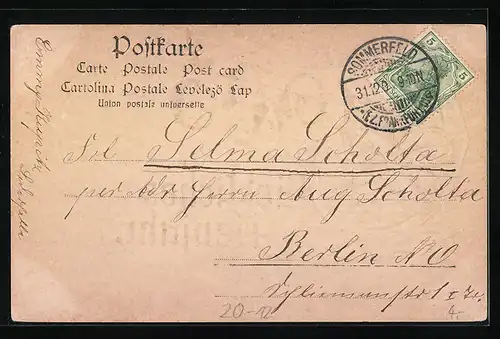 Postkarte
Carte Postale Post card
Cartolina Postale Levelező Lap
Union postale universelle
SOMMERFELD
31.12.0 9-10N
5 5
Emmy
Frl. Selma Scholta
per Adr Herrn Aug Scholta
Berlin NO
I
20-12
4,-